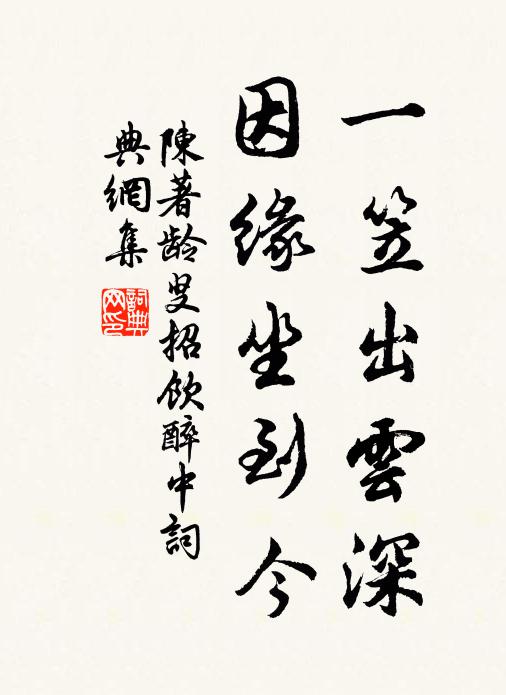 一笠出雲深
因緣坐到今
陳著龄叟招飲醉中詞
典網集
詞典網印